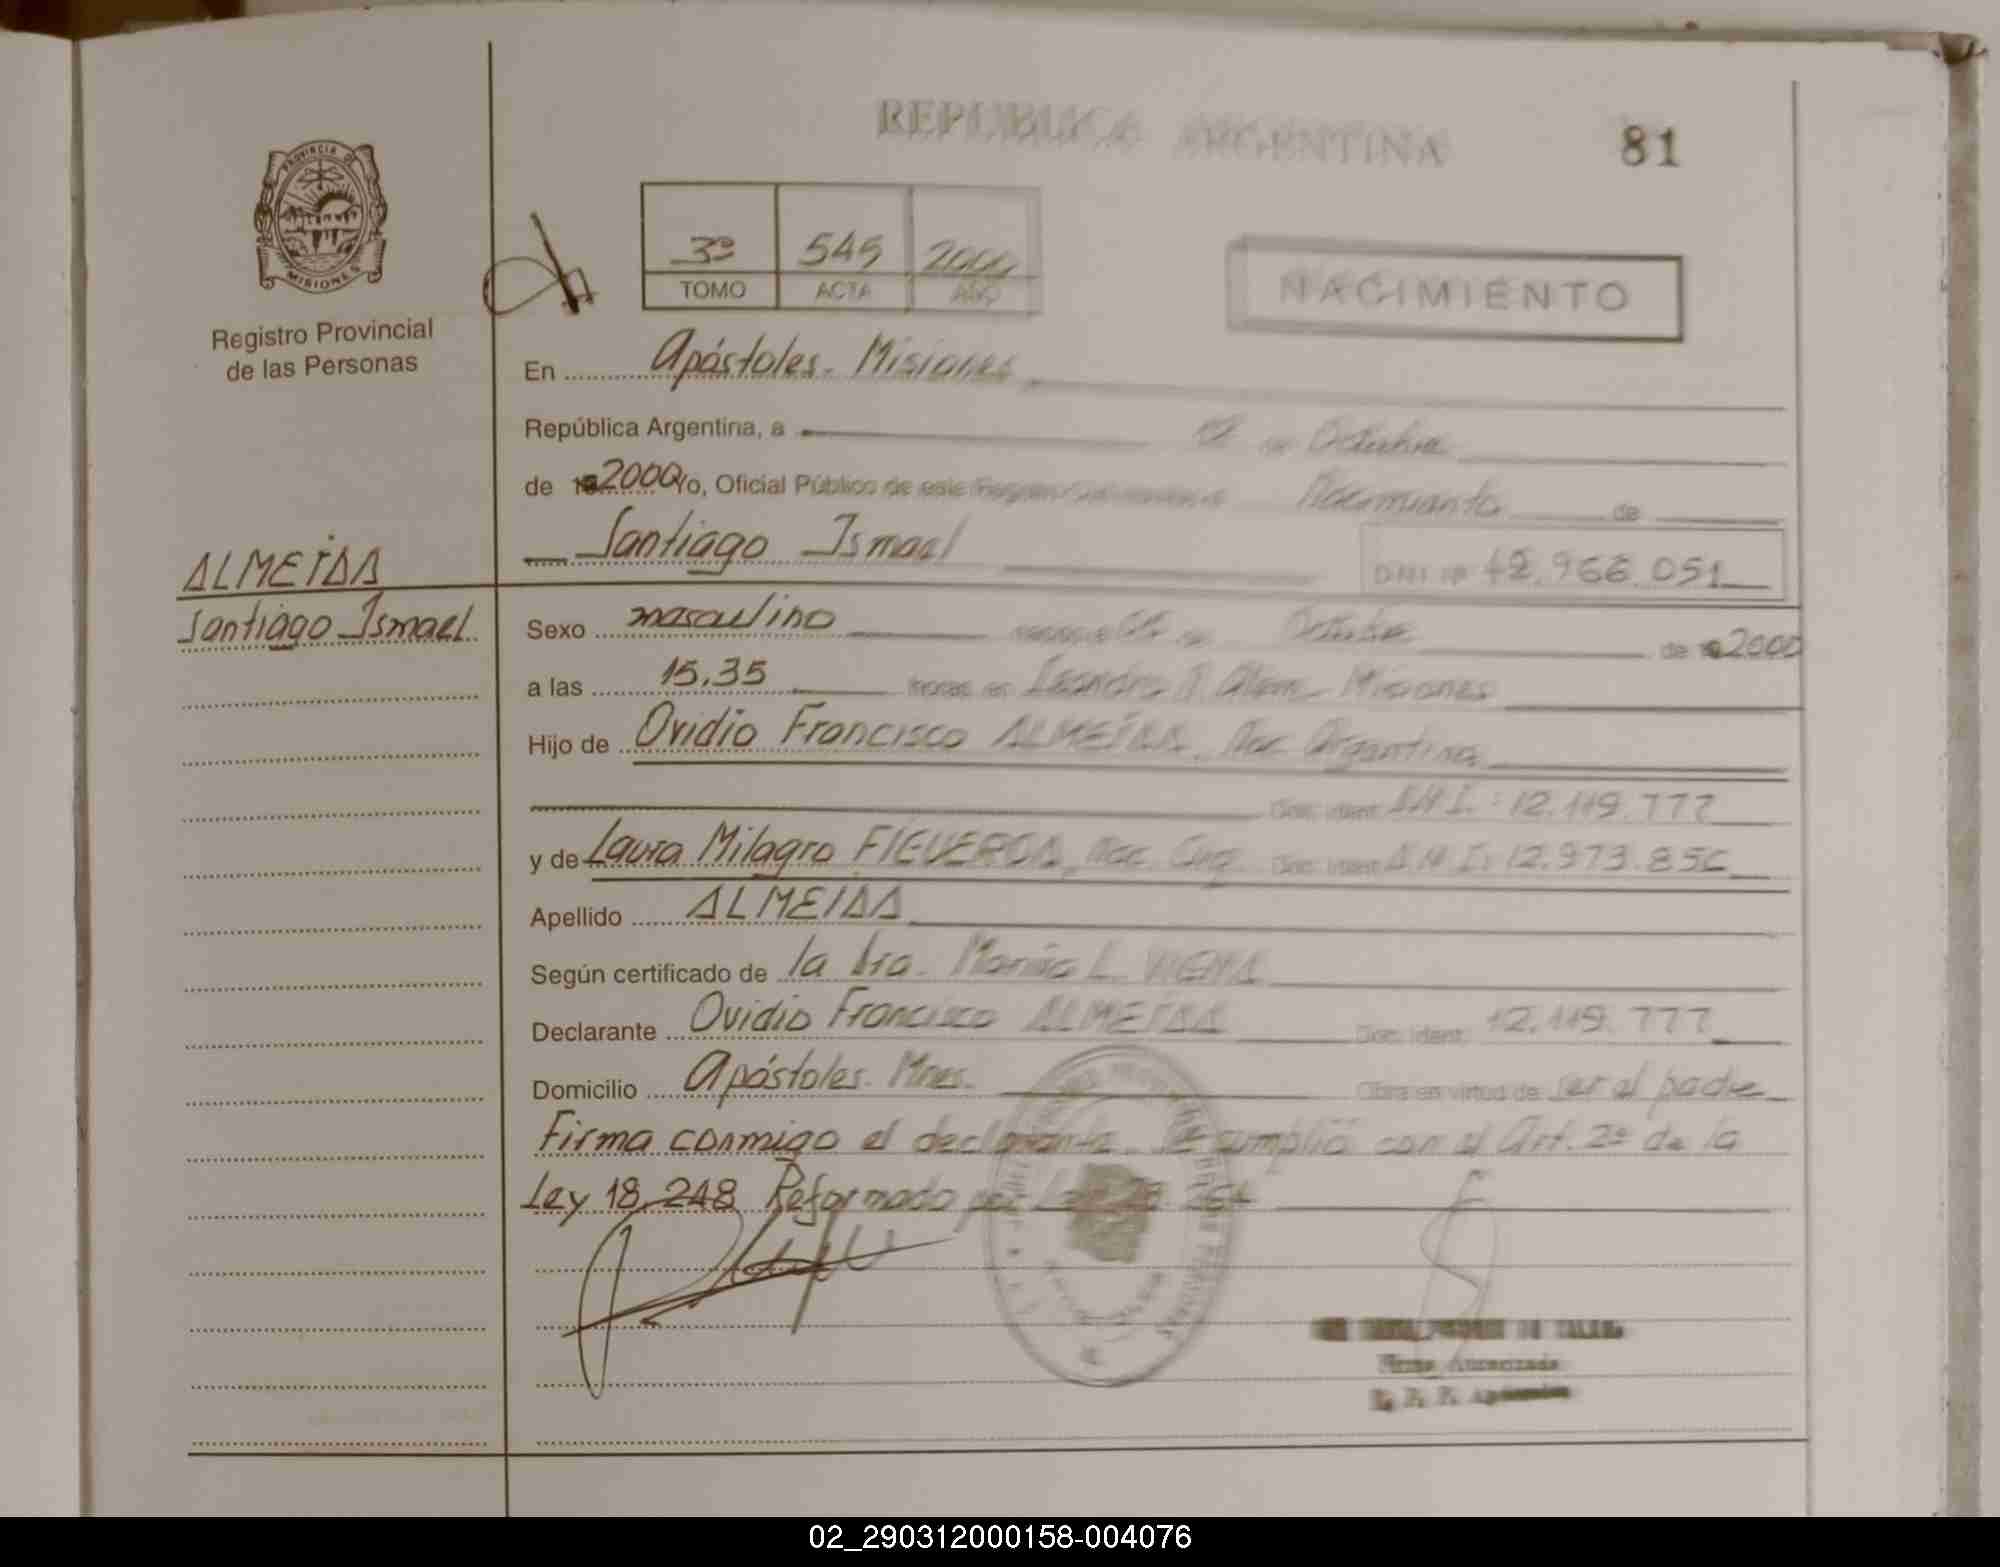 REPUBLICA ARGENTINA
81
PROVINCIA DE
MISIONES
Registro Provincial
de las Personas
3º 545 2000
TOMO ACTA AÑO
NACIMIENTO
En Apóstoles. Misiones
República Argentina, a de Octubre
de 2000 Yo, Oficial Público de este Nacimiento de
Santiago Ismael
DNI Nº 42.966.051
ALMEIDA
Santiago Ismael
Sexo masculino de Octubre de 2000
a las 15,35 horas en Leandro N. Alem - Misiones
Hijo de Ovidio Francisco ALMEIDA, Nac. Argentina
Doc. Ident. D.N.I.: 12.119.777
y de Laura Milagro FIGUEROA, Nac. Doc. Ident. D.N.I.:
Apellido ALMEIDA
Según certificado de la Dra. L.
Declarante Ovidio Francisco ALMEIDA Doc. Ident. 12.119.777
Domicilio Apóstoles. Mnes. Obra en virtud de ser el padre
Firma conmigo el declarante. Se cumplió con el Art. 2º de la
Ley 18.248 Reformado por Ley
Firma Autorizada
02_290312000158-004076